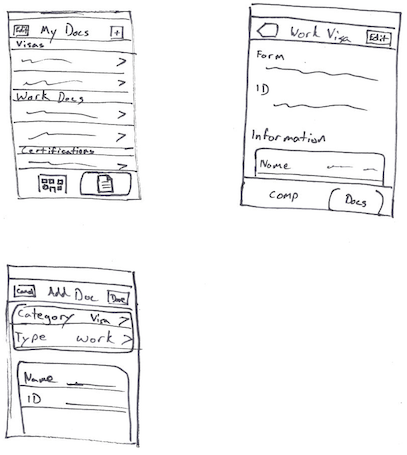 Edit My Docs +
Visas
Work Docs
Certifications
Work Visa Edit
Form
ID
Information
Name
COMP Docs
Cancel Add Doc Done
Category Visa >
Type Work >
Name
ID